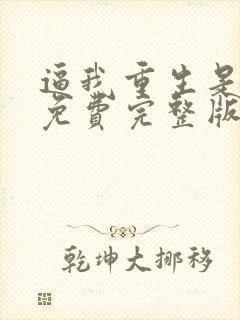 逼我重生是
免費完整版
乾坤大挪移